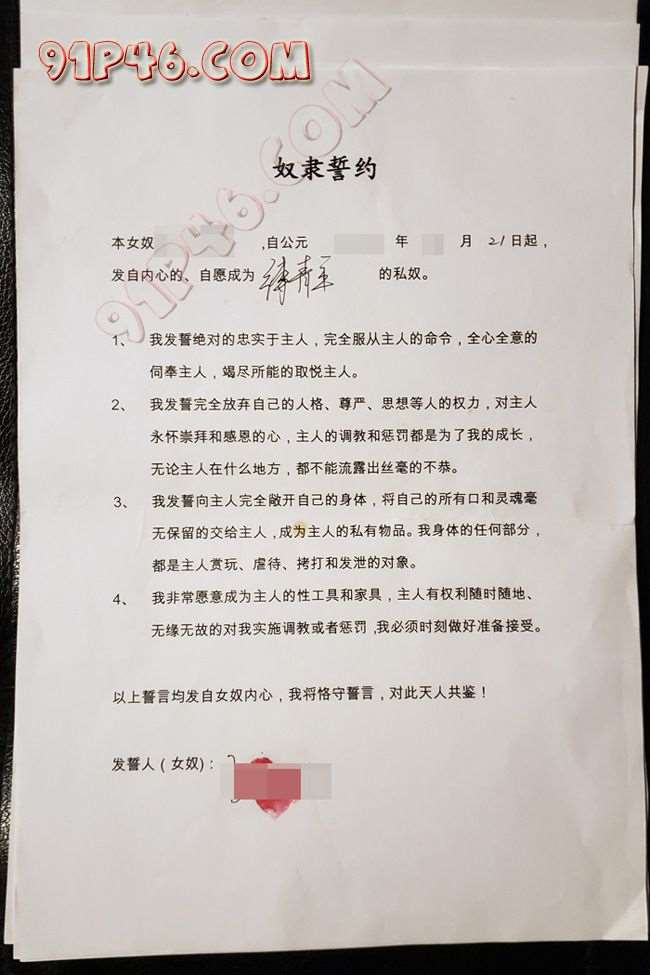 91P46.COM
91P46.COM
奴隶誓约
本女奴 ,自公元 年 月 21日起，
发自内心的、自愿成为 的私奴。
1、 我发誓绝对的忠实于主人，完全服从主人的命令，全心全意的
伺奉主人，竭尽所能的取悦主人。
2、 我发誓完全放弃自己的人格、尊严、思想等人的权力，对主人
永怀崇拜和感恩的心，主人的调教和惩罚都是为了我的成长，
无论主人在什么地方，都不能流露出丝毫的不恭。
3、 我发誓向主人完全敞开自己的身体，将自己的所有口和灵魂毫
无保留的交给主人，成为主人的私有物品。我身体的任何部分，
都是主人赏玩、虐待、拷打和发泄的对象。
4、 我非常愿意成为主人的性工具和家具，主人有权利随时随地、
无缘无故的对我实施调教或者惩罚，我必须时刻做好准备接受。
以上誓言均发自女奴内心，我将恪守誓言，对此天人共鉴！
发誓人（女奴)：